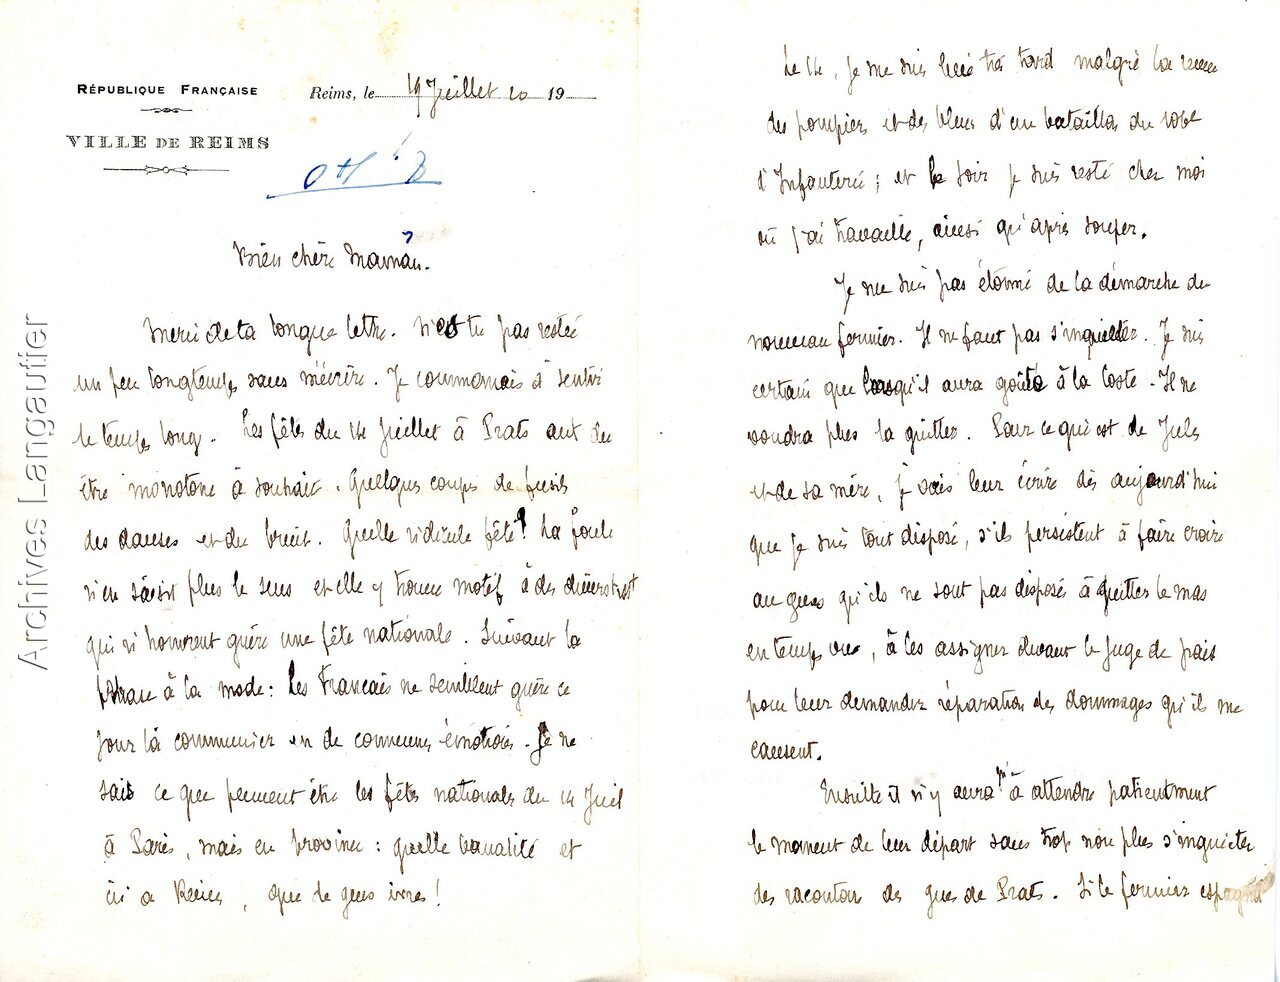 RÉPUBLIQUE FRANÇAISE
VILLE DE REIMS
Reims, le 19 Juillet 10 19
Bien chère Maman.
Merci de ta longue lettre. N'es tu pas restée
un peu longtemps sans m'écrire. Je commençais à sentir
le temps long. Les fêtes du 14 Juillet à Prats ont du
être monotone à souhait. Quelques coups de fusils
des danses et du bruit. Quelle ridicule fête! La foule
n'en saisit plus le sens et elle y trouve motif à des
qui n'honorent guère une fête nationale. Suivant la
phrase à la mode: les Français ne semblent guère ce
jour là communier en de communes émotions. Je ne
sais ce que peuvent être les fêtes nationales du 14 Juil
à Paris, mais en province: quelle banalité et
ici a Reims, que de gens ivres!
Le 14, je me suis levé très tard malgré la revue
des pompiers et des bleus d'un bataillon du
d'Infanterie; et le soir je suis resté chez moi
où j'ai travaillé, ainsi qu'après souper.
Je ne suis pas étonné de la démarche du
nouveau fermier. Il ne faut pas s'inquieter. Je suis
certain que lorsqu'il aura goûté à la Coste. Il ne
voudra plus la quitter. Pour ce qui est de Jules
et de sa mère, je vais leur écrire dès aujourd'hui
que je suis tout disposé, s'ils persistent à faire croire
au gens qu'ils ne sont pas disposé à quitter le mas
en temps , à les assigner devant le Juge de paix
pour leur demander réparation des dommages qu'ils me
causent.
Ensuite il n'y aura m' à attendre patiemment
le moment de leur départ sans trop non plus s'inquieter
des racontars des gens de Prats. Si le fermier espagnol
Archives Langautier